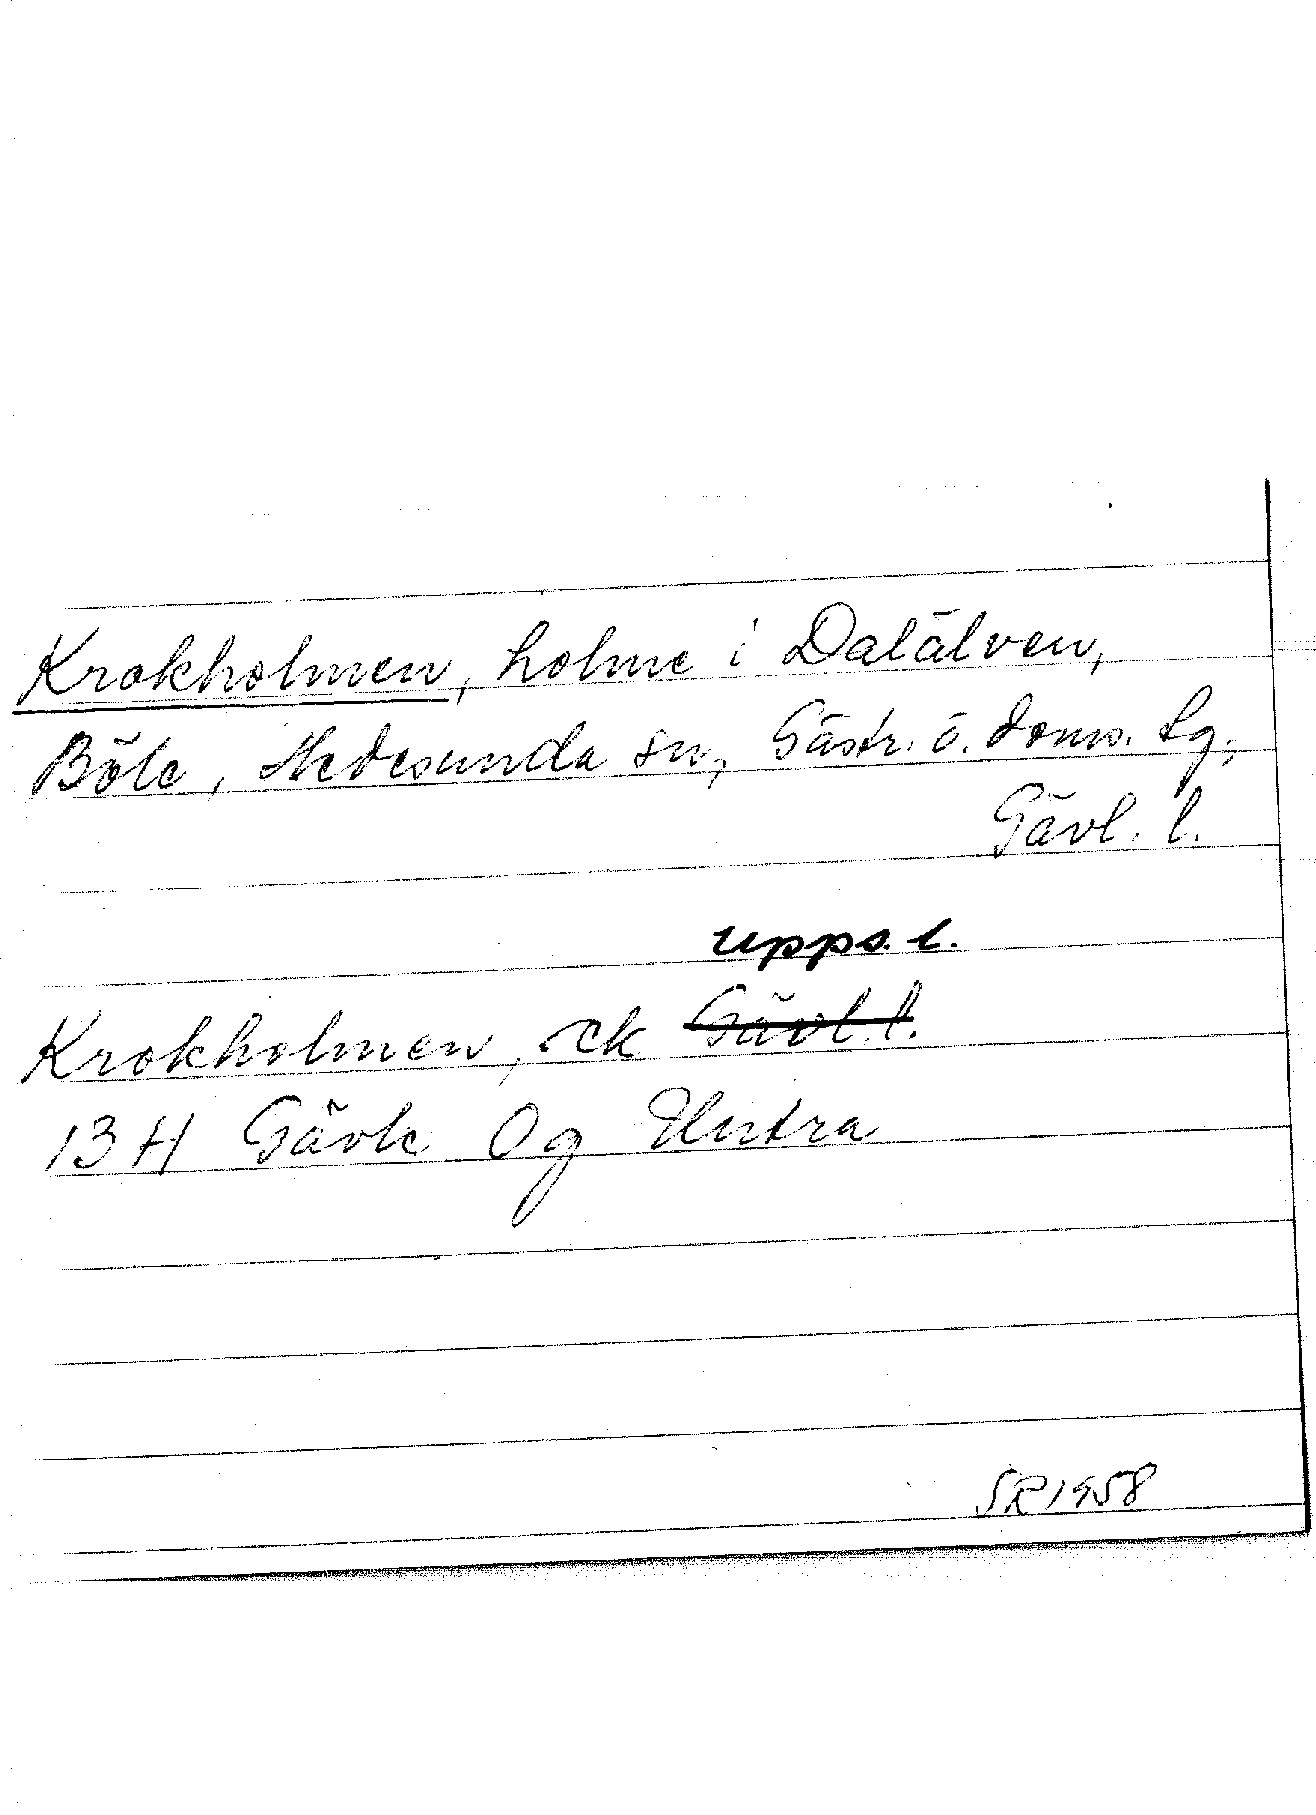 Krokholmen, holme i Dalälven,
Böle, Hedesunda sn, Gästr. ö. doms. tg,
Gävl. l.
Upps. l.
Krokholmen, ek Gävl. l.
13 H Gävle 0g Untra
SR 1958